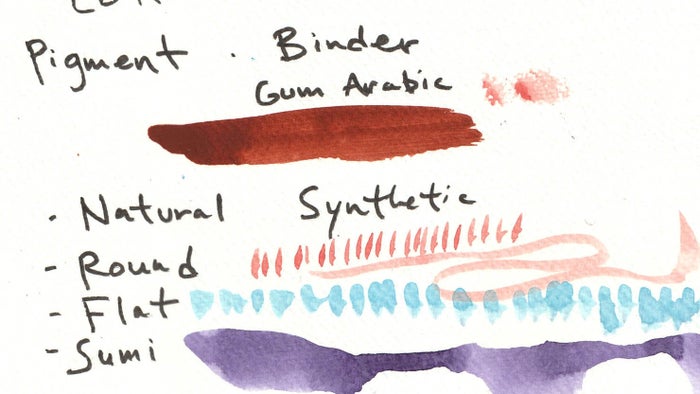 Pigment · Binder
Gum Arabic
· Natural Synthetic
- Round
- Flat
- Sumi